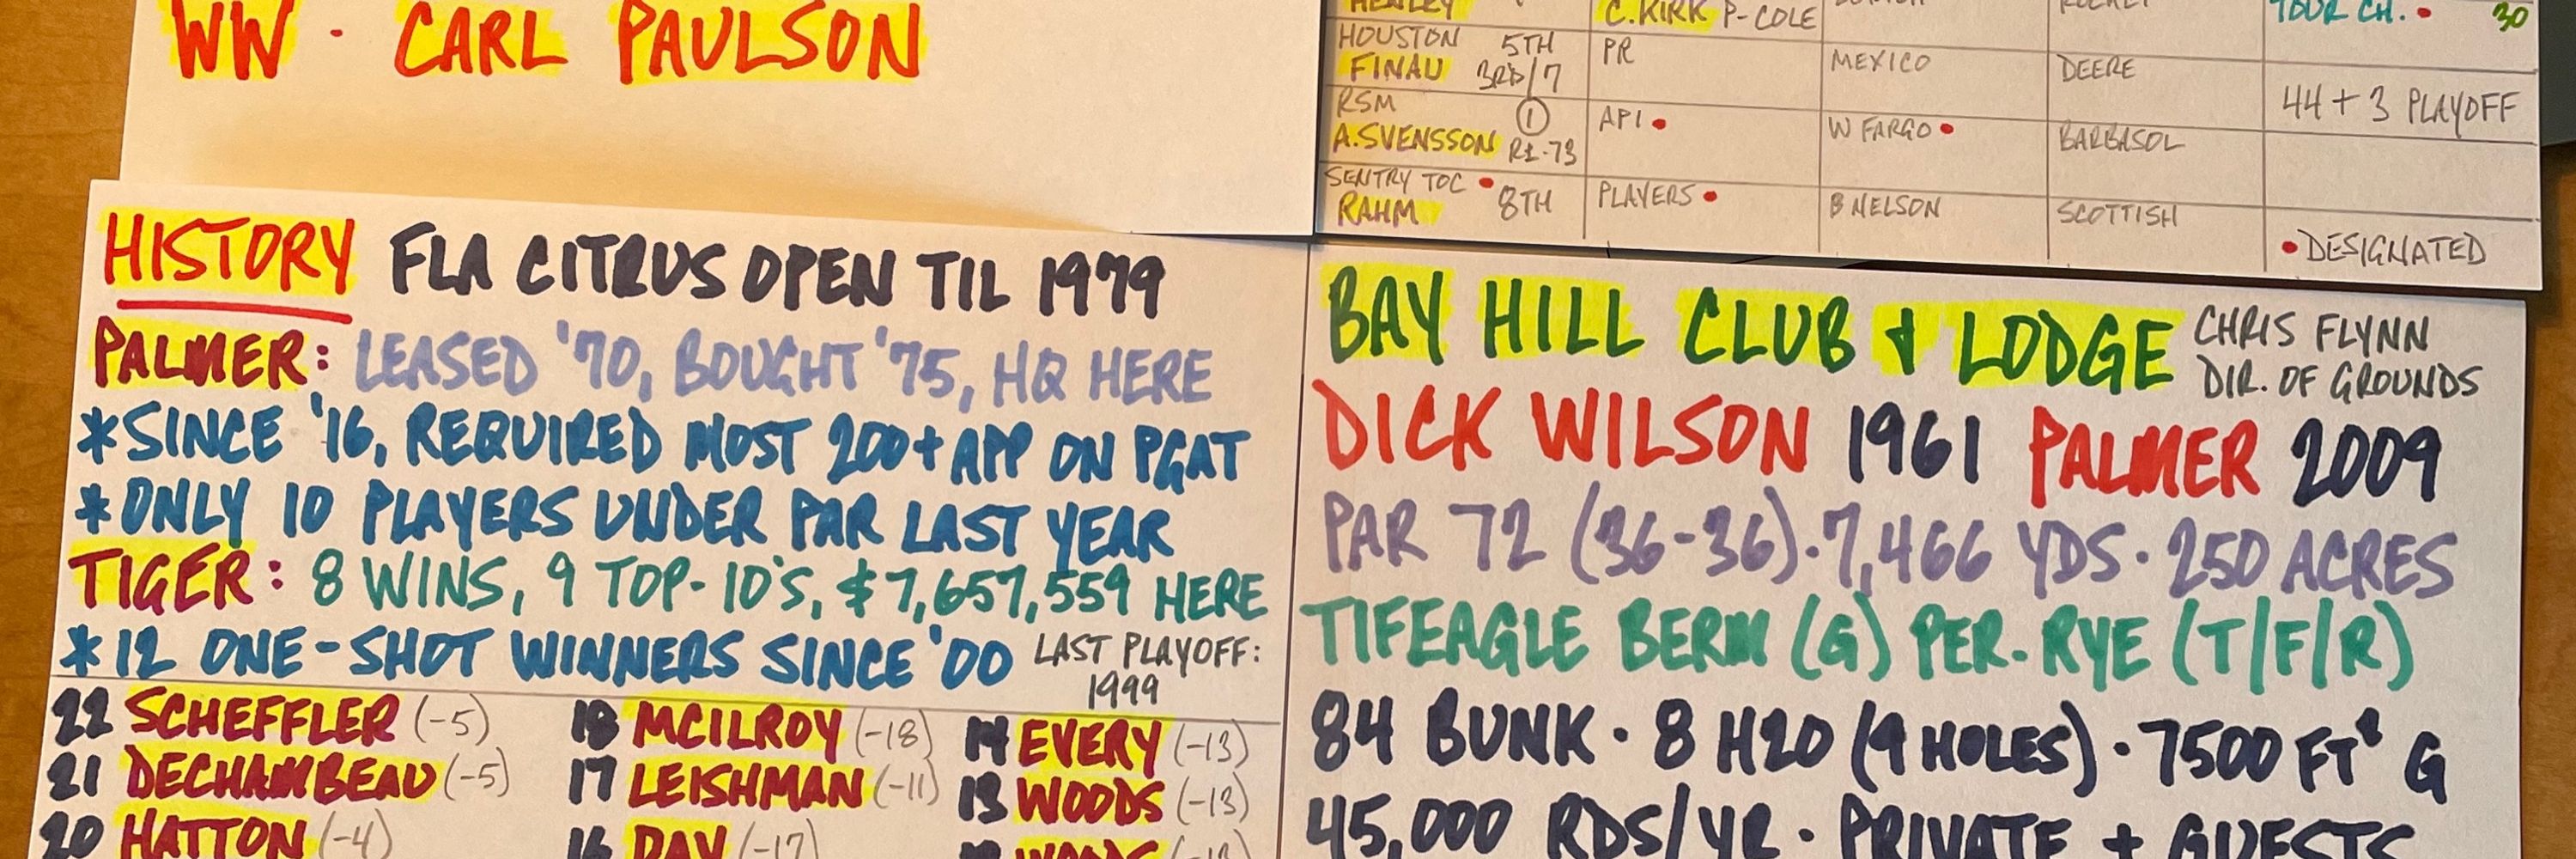 WW · CARL PAULSON
HENLEY C.KIRK P-COLE TOUR CH. • 30
HOUSTON 5TH PR MEXICO DEERE
FINAU 3RD/7
44 + 3 PLAYOFF
RSM ① API • W FARGO • BARBASOL
A.SVENSSON R1-73
SENTRY TOC • 8TH PLAYERS • B NELSON SCOTTISH
RAHM
• DESIGNATED
HISTORY FLA CITRUS OPEN TIL 1979
PALMER: LEASED '70, BOUGHT '75, HQ HERE
*SINCE '16, REQUIRED MOST 200+ APP ON PGAT
*ONLY 10 PLAYERS UNDER PAR LAST YEAR
TIGER: 8 WINS, 9 TOP-10'S, $7,657,559 HERE
*12 ONE-SHOT WINNERS SINCE '00 LAST PLAYOFF: 1999
22 SCHEFFLER (-5) 18 MCILROY (-18) 14 EVERY (-13)
21 DECHAMBEAU (-5) 17 LEISHMAN (-11) 13 WOODS (-13)
20 HATTON (-4) 16 DAY (-17) WOODS
BAY HILL CLUB + LODGE CHRIS FLYNN
DIR. OF GROUNDS
DICK WILSON 1961 PALMER 2009
PAR 72 (36-36) · 7,466 YDS · 250 ACRES
TIFEAGLE BERM (G) PER. RYE (T/F/R)
84 BUNK · 8 H2O (9 HOLES) · 7500 FT² G
45,000 RDS/YR · PRIVATE + GUESTS